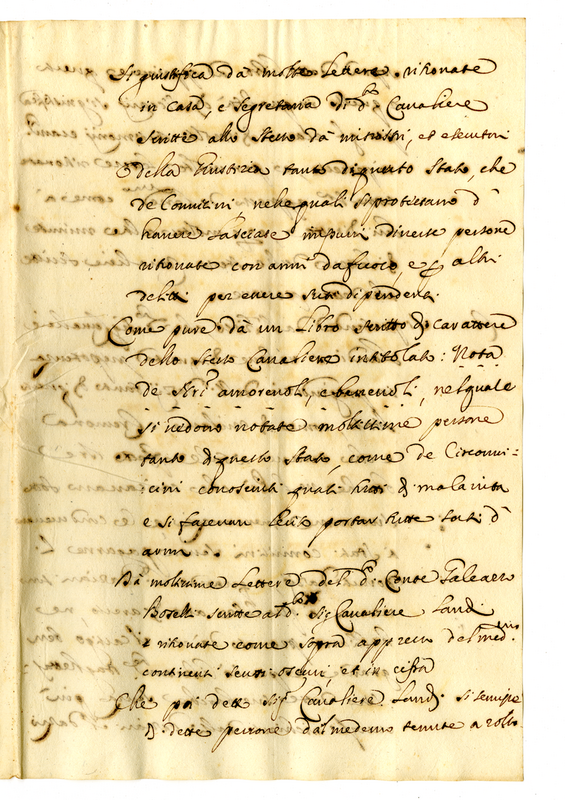 Si giustifica dà molte lettere ritrovate
in casa, e segretaria di d.º Cavaliere
scritte allo stesso dà ministri, et esecutori
della Giustizia tanto di questo Stato, che
de Convicini nelle quali si protestano d'
havere lasciate impuni diverse persone
ritrovate con armi da fuoco, e altri
delitti per essere suoi dipendenti.
Come pure dà un Libro scritto di carattere
dello stesso Cavaliere intitolato: Nota
de Sri amorevoli, e benevoli, nel quale
si vedono notate moltissime persone
tanto di questo Stato, come de Circonvi=
cini conosciuti quali tutti di mala vita
e si facevan lecito portar tutte sorti d'
armi
Dà moltissime Lettere del d.º Conte Galeazzo
Boselli scritte al d.º Sig. Cavaliere Landi
e ritrovate come sopra appresso del med.mo
continenti sensi oscuri, et in cifra
Che poi detto Sig. Cavaliere Landi si servisse
di dette persone dal medemo tenute a rollo